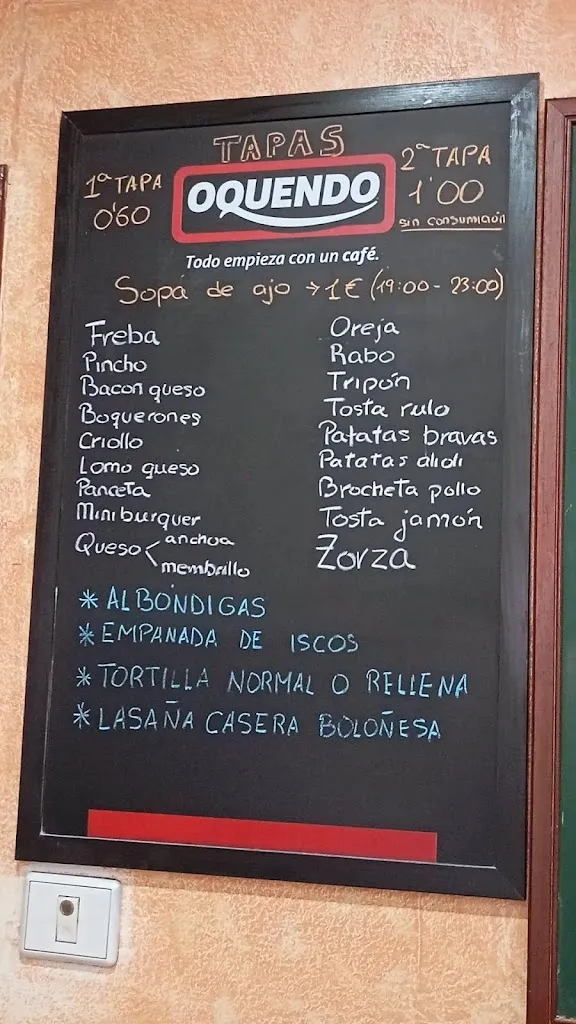 TAPAS
1ª TAPA
0'60
OQUENDO
2ª TAPA
1'00
sin consumición
Todo empieza con un café.
Sopa de ajo → 1€ (19:00 - 23:00)
Freba
Pincho
Bacon queso
Boquerones
Criollo
Lomo queso
Panceta
Miniburquer
Queso < anchoa
membrillo
Oreja
Rabo
Tripón
Tosta rulo
Patatas bravas
Patatas alioli
Brocheta pollo
Tosta jamón
Zorza
* ALBONDIGAS
* EMPANADA DE ISCOS
* TORTILLA NORMAL O RELLENA
* LASAÑA CASERA BOLOÑESA